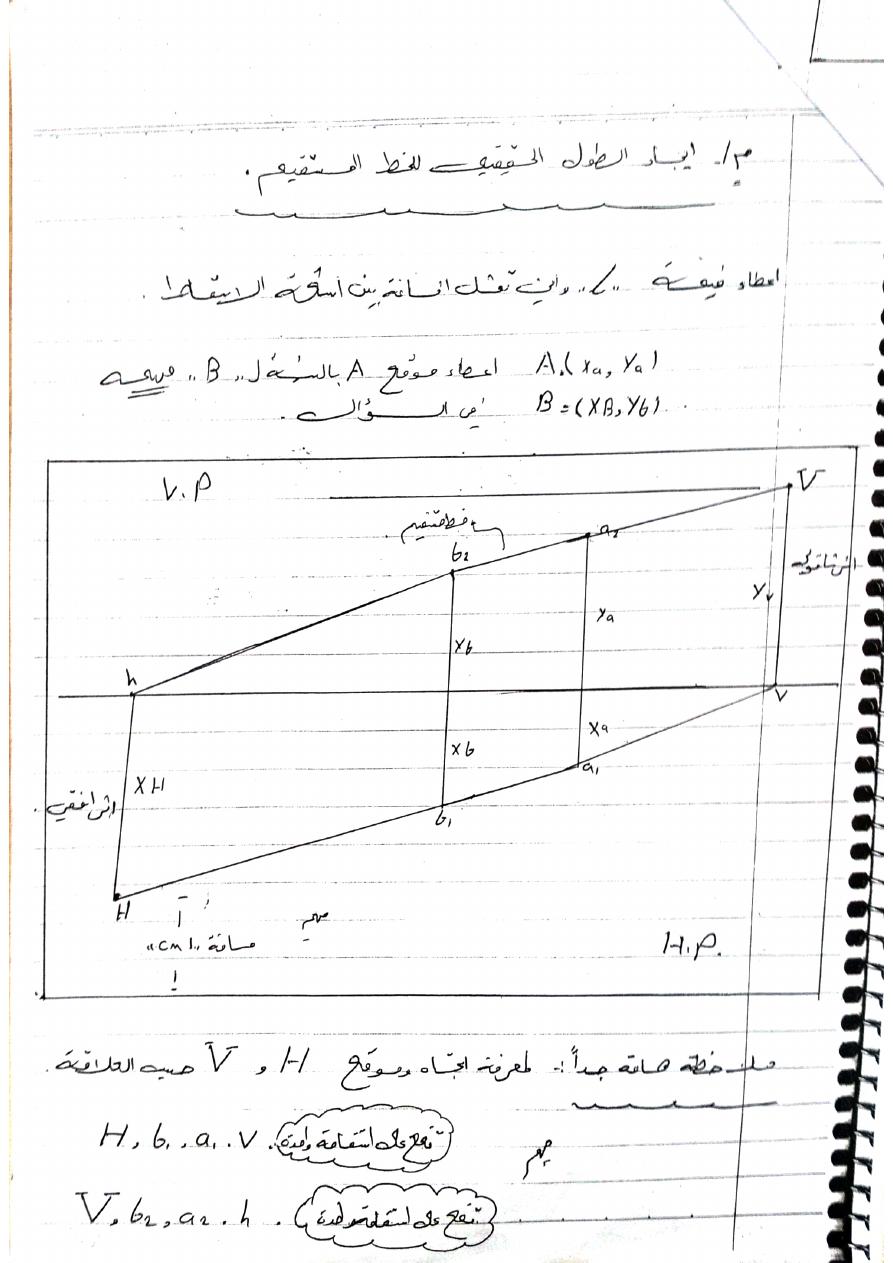 م/. ايجاد الطول الحقيقي للخط المستقيم .
اعطاء قيمة "L" وان تمثل المسافة بين اسقاط الاسقاط .
A.(xa, Ya) اعطاء موقع A بالنسبة ل "B" مهمه
B=(XB, Yb) في السؤال .
V.P
V
خط مستقيم
a2
b2
اثر شاقولي
Y
Ya
Xb
h
v
Xb
Xa
a1
XH
اثر افقي
b1
H
مهم
مسافة "1 cm"
H.P.
ملاحظة هامة جداً :- لمعرفة اتجاه وموقع H و V حسب العلاقة .
H, b1, a1, v . تقع على استقامة واحدة
مهم
V, b2, a2, h . تقع على استقامة واحدة